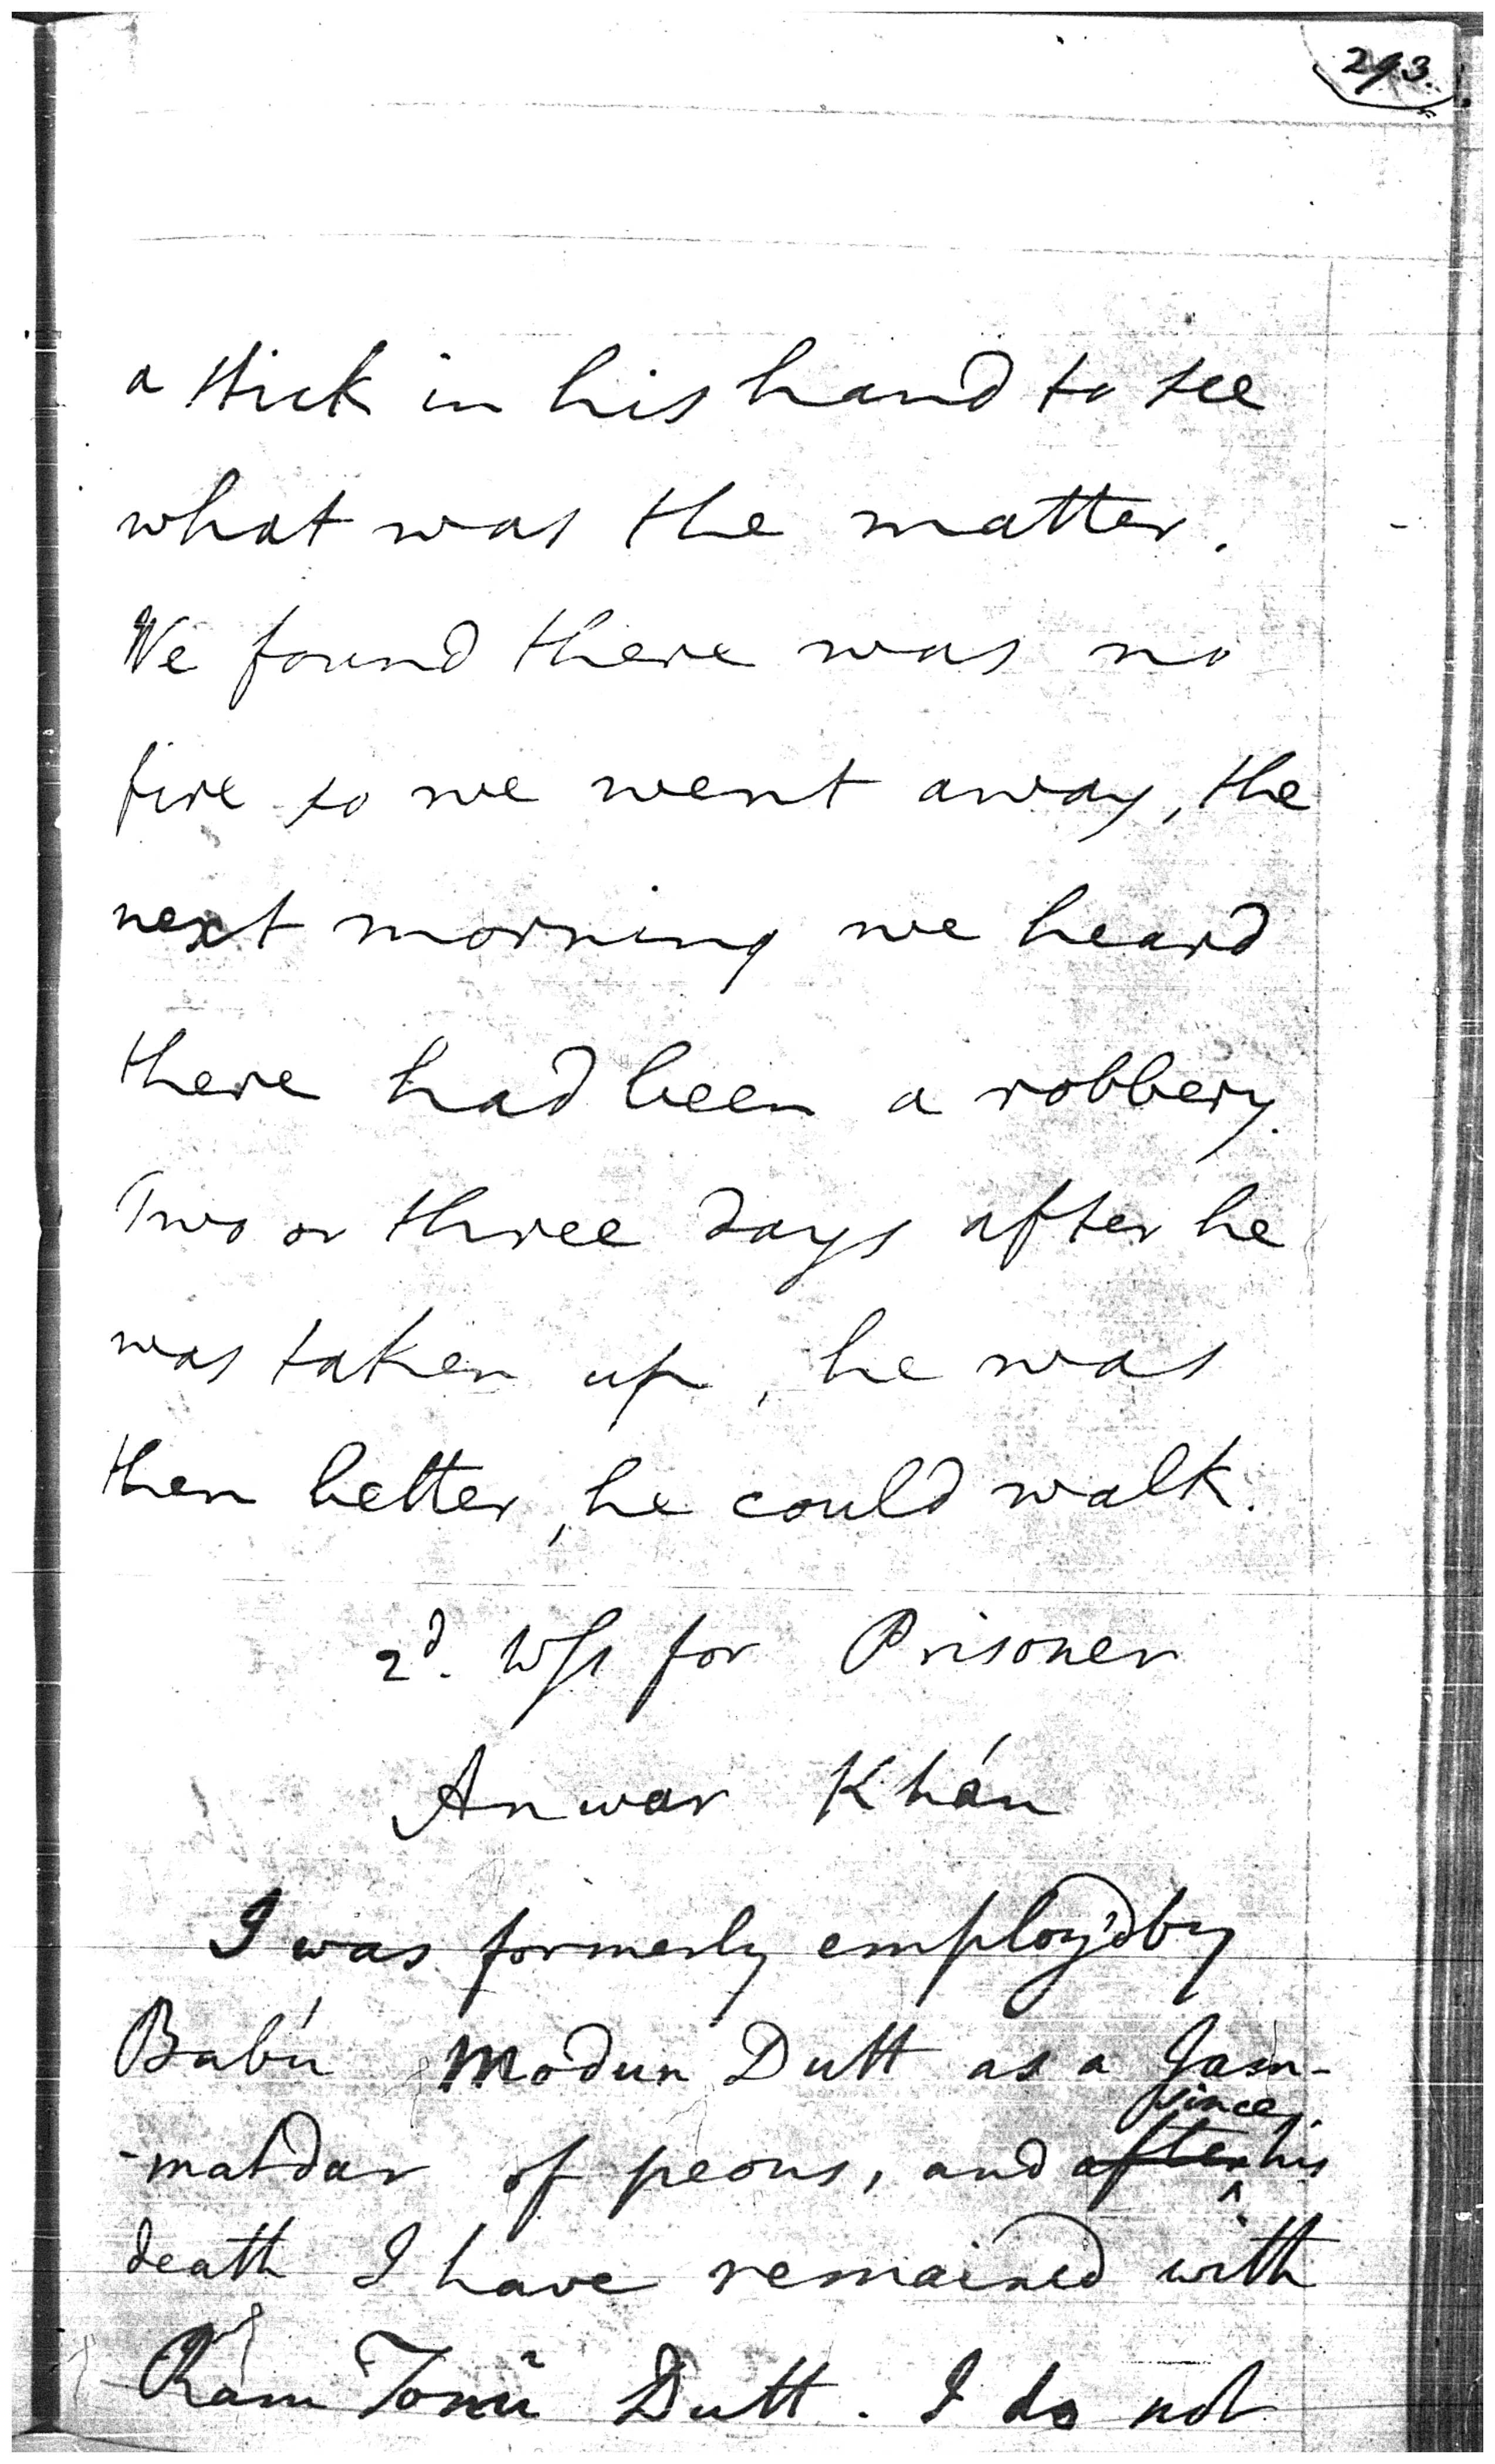 293.
a stick in his hand to see
what was the matter.
We found there was no
fire so we went away, the
next morning we heard
there had been a robbery.
Two or three days after he
was taken up, he was
then better, he could walk.
2d. Wss for Prisoner
Anwar Khán
I was formerly employ'd by
Babú Modun Dutt as a Jam-
since
-matdar of peons, and after his
death I have remained with
Rám Tonú Dutt. I do not